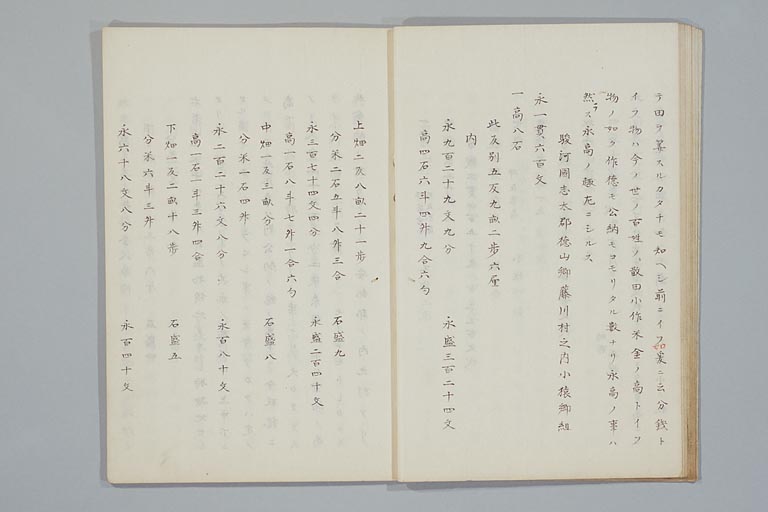 テ田ヲ募スルカタチモ知ヘシ前ニイフ如爰ニ云分銭ト
イフ物ハ今ノ世ノ百姓ノ散田小作米金ノ高トイフ
物ノ如ク作徳モ公納モコモリタル数ナリ永高ノ事ハ
然ラス永高ノ趣左ニシルス
駿河國志太郡徳山郷藤川村之内小猿郷組
永一貫六百文
一高八石
此反別五反九畝二歩六厘
内
永九百二十九文九分 永盛三百二十四文
一高四石六斗四升九合六勺
上畑二反八畝二十一歩
分米二石五斗八升三合 石盛九
永三百七十四文四分 永盛二百四十文
高一石八斗七升一合六勺
中畑一反三畝分
分米一石四升 石盛八
永二百二十六文八分 永百八十文
高一石一斗三升四合
下畑一反二畝十八歩
分米六斗三升 石盛五
永六十八文八分 永百四十文